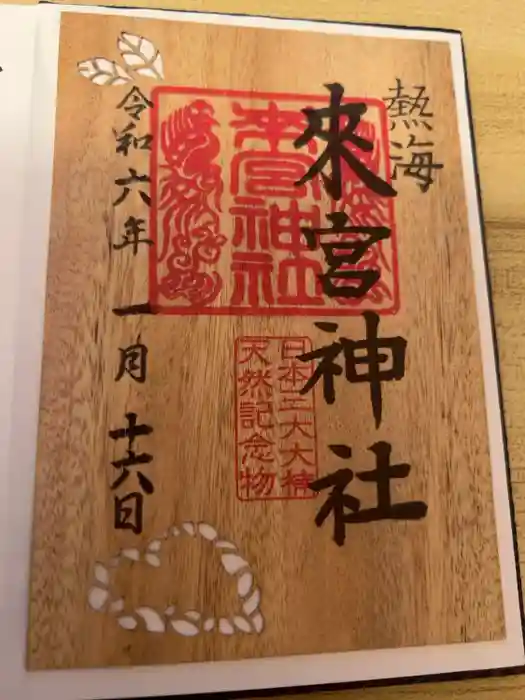 熱海
來宮神社
來宮神社
日本三大大楠
天然記念物
令和六年 一月 十六日